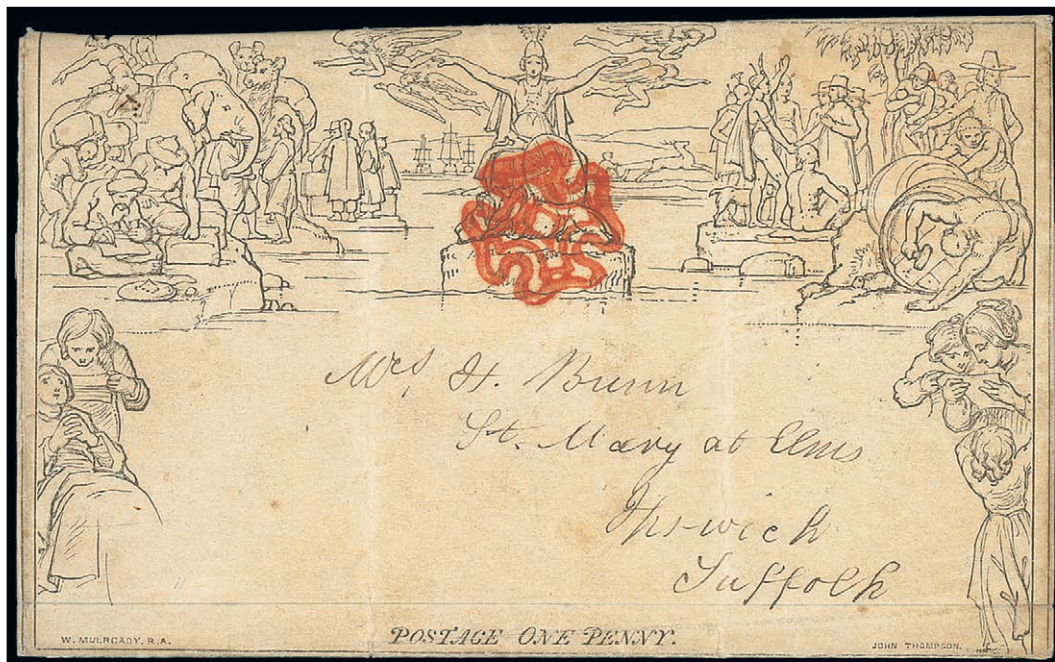 Mrs H. Bunn
St. Mary at Elms
Ipswich
Suffolk
W. MULREADY. R.A.
POSTAGE ONE PENNY.
JOHN THOMPSON.